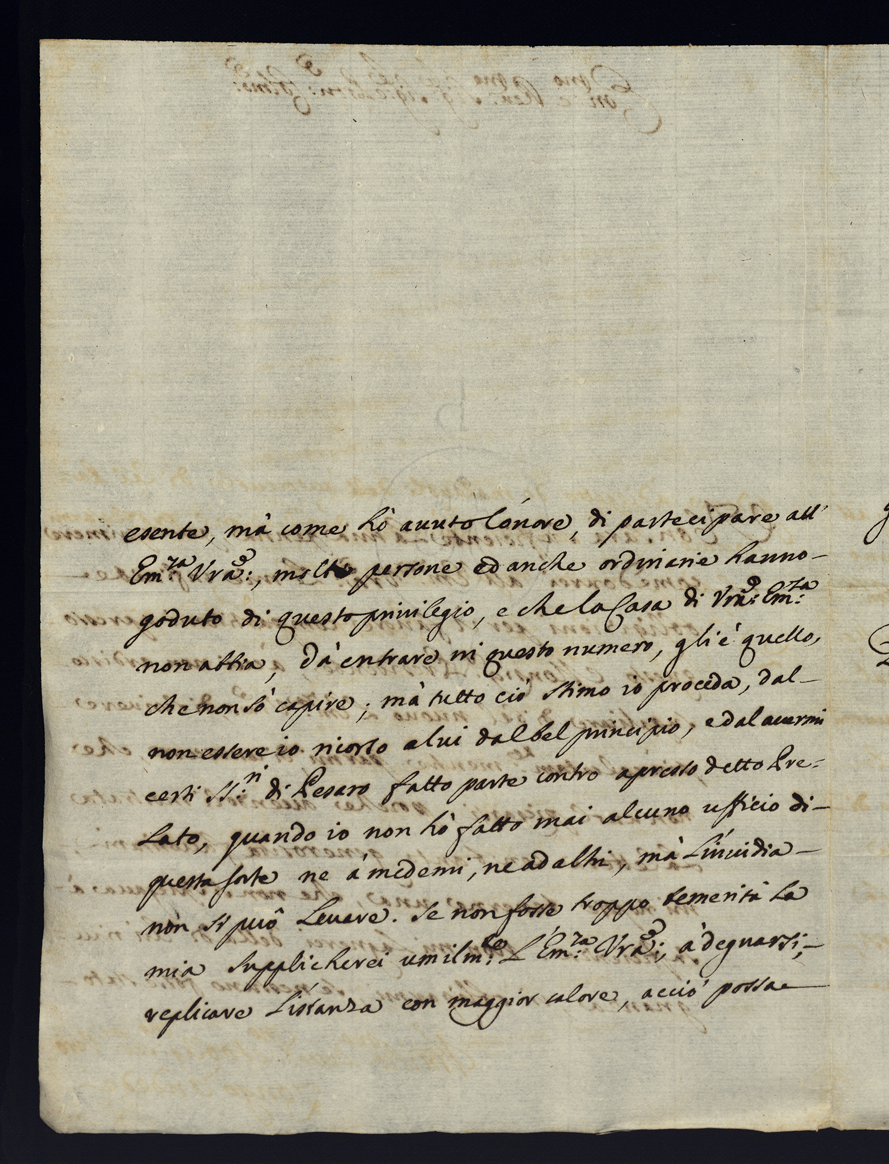 esente, mà come hò auuto l'onore, di partecipare all'
Em.za Vra:, molte persone ed anche ordinarie hanno-
goduto di questo privilegio, e che la Casa di Vra: Em.za
non abbia, dà entrare in questo numero, gli è quello,
che non sò capire; mà tutto ciò stimo io proceda, dal-
non essere io ricorso a lui dal bel principio, e dal auermi
certi SS.ri di Pesaro fatto parte contro apresso detto Pre:
lato, quando io non hò fatto mai alcuno ufficio di-
questa sorte ne à medemi, ne ad altri, mà L'inuidia-
non si può Leuare. Se non fosse troppo temerità La
mia supplicherei umilm.te L'Em.za Vra:, à deguarsi,-
replicare L'istanza con maggior calore, acciò possa-